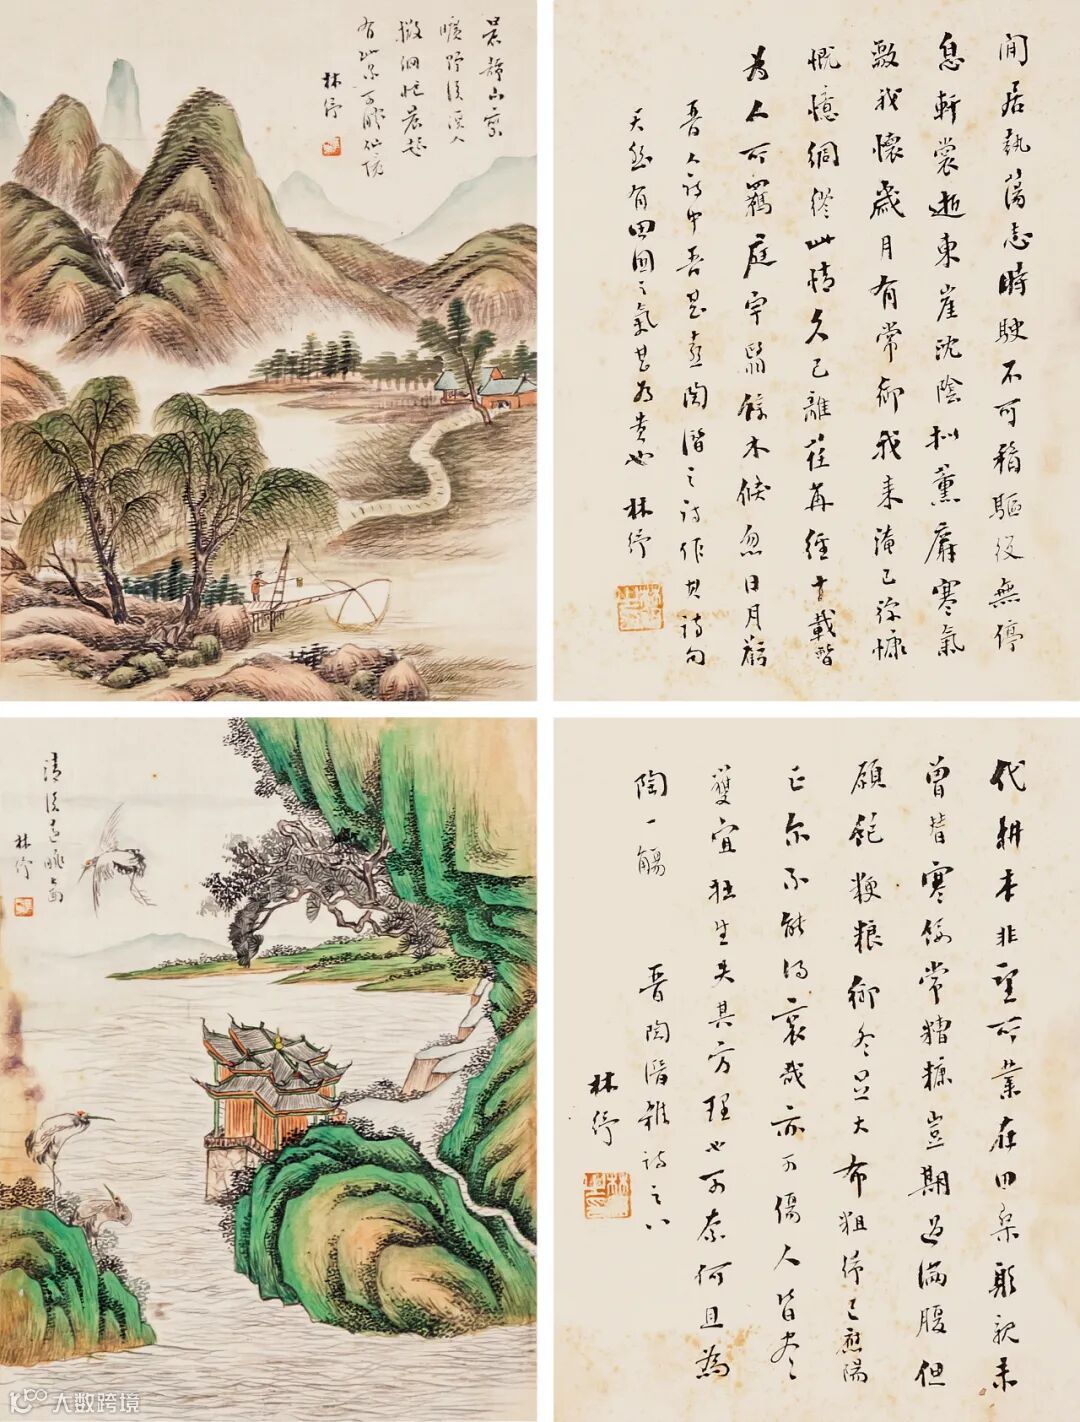 山
曠野漁人
撒網忙晨起
有此
林紓
閒居執蕩志時駛不可稽驅役無停
息軒裳逝東崖沈陰擬薰麝寒氣
激我懷歲月有常御我來淹已彌慷
慨憶綢繆此情久已離荏苒經十載暫
為人所羈庭宇翳餘木倏忽日月虧
晉人詩中吾最喜陶潛之詩作其詩句
天然有田園之氣甚為貴也 林紓
清溪遠眺圖
林紓
代耕本非望所業在田桑躬親未
曾替寒餒常糟糠豈期過滿腹但
願飽粳糧御冬足大布粗絺已應陽
正尔不能得哀哉亦可傷人皆盡
獲宜拙生失其方理也可奈何且為
陶一觴 晉陶潛雜詩之八
林紓
大数跨境